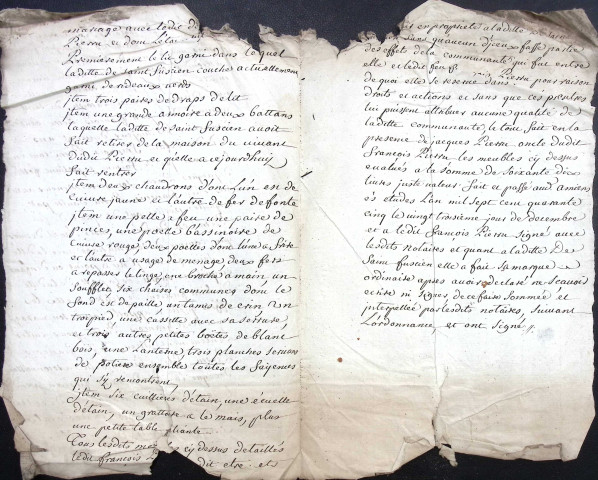 mariage avec ledit
Pierru et dont l'état
Premierement le lit garni dans lequel
laditte de saint fuscien couche actuellement
garni de rideaux verds
jtem trois paires de draps de lit
jtem une grande armoire a deux battans
laquelle laditte de saint fuscien avoit
fait retirer de la maison du vivant
dudit Pierru et qu'elle a cejourdhuy
fait rentrer
jtem deux chaudrons dont l'un est de
cuivre jaune et l'autre de fer de fonte
jtem une pelle a feu une paire de
pinces, une poele bassinoire de
cuivre rouge, deux poeles dont l'une a frire
et l'autre a usage de menage deux fers
a repasser le linge, une broche a main un
soufflet six chaises communes dont le
fond est de paille un tamis de crin un
trepied, une cassette avec sa serrure
et trois autres petites boëtes de blanc
bois, une lanterne trois planches servans
de potiere ensemble toutes les fayences
qui s'y rencontrent
jtem six cuillieres d'étain, une écuelle
d'étain, un grattoir a le mais, plus
une petite table pliante
Tous lesdits meubles cy dessus detaillés
ledit françois dit etre et
en propriété a laditte
sans qu'aucun d'jceux fasse partie
des effet de la communauté qui fut entre
elle et ledit feu
Pierru pour raison
de quoi elle se reserve dans
droits et actions et sans que ces presentes
lui puissent attribuer aucune qualité de
laditte communauté, le tout fait en la
presence de jacques Pierru oncle dudit
françois Pierru, les meubles cy dessus
evalués a la somme de soixante dix
livres juste valeur. fait et passé audit amiens
es études l'an mil sept cent quarante
cinq le vingt troisieme jour de decembre
et a ledit françois Pierru signé avec
lesdits notaires et quant a laditte De
saint fuscien elle a fait sa marque
ordinaire apres avoir declaré ne scavoir
ecrire ni signer, de ce faire sommée et
interpellée par lesdits notaires, suivant
l'ordonnance, et ont signé